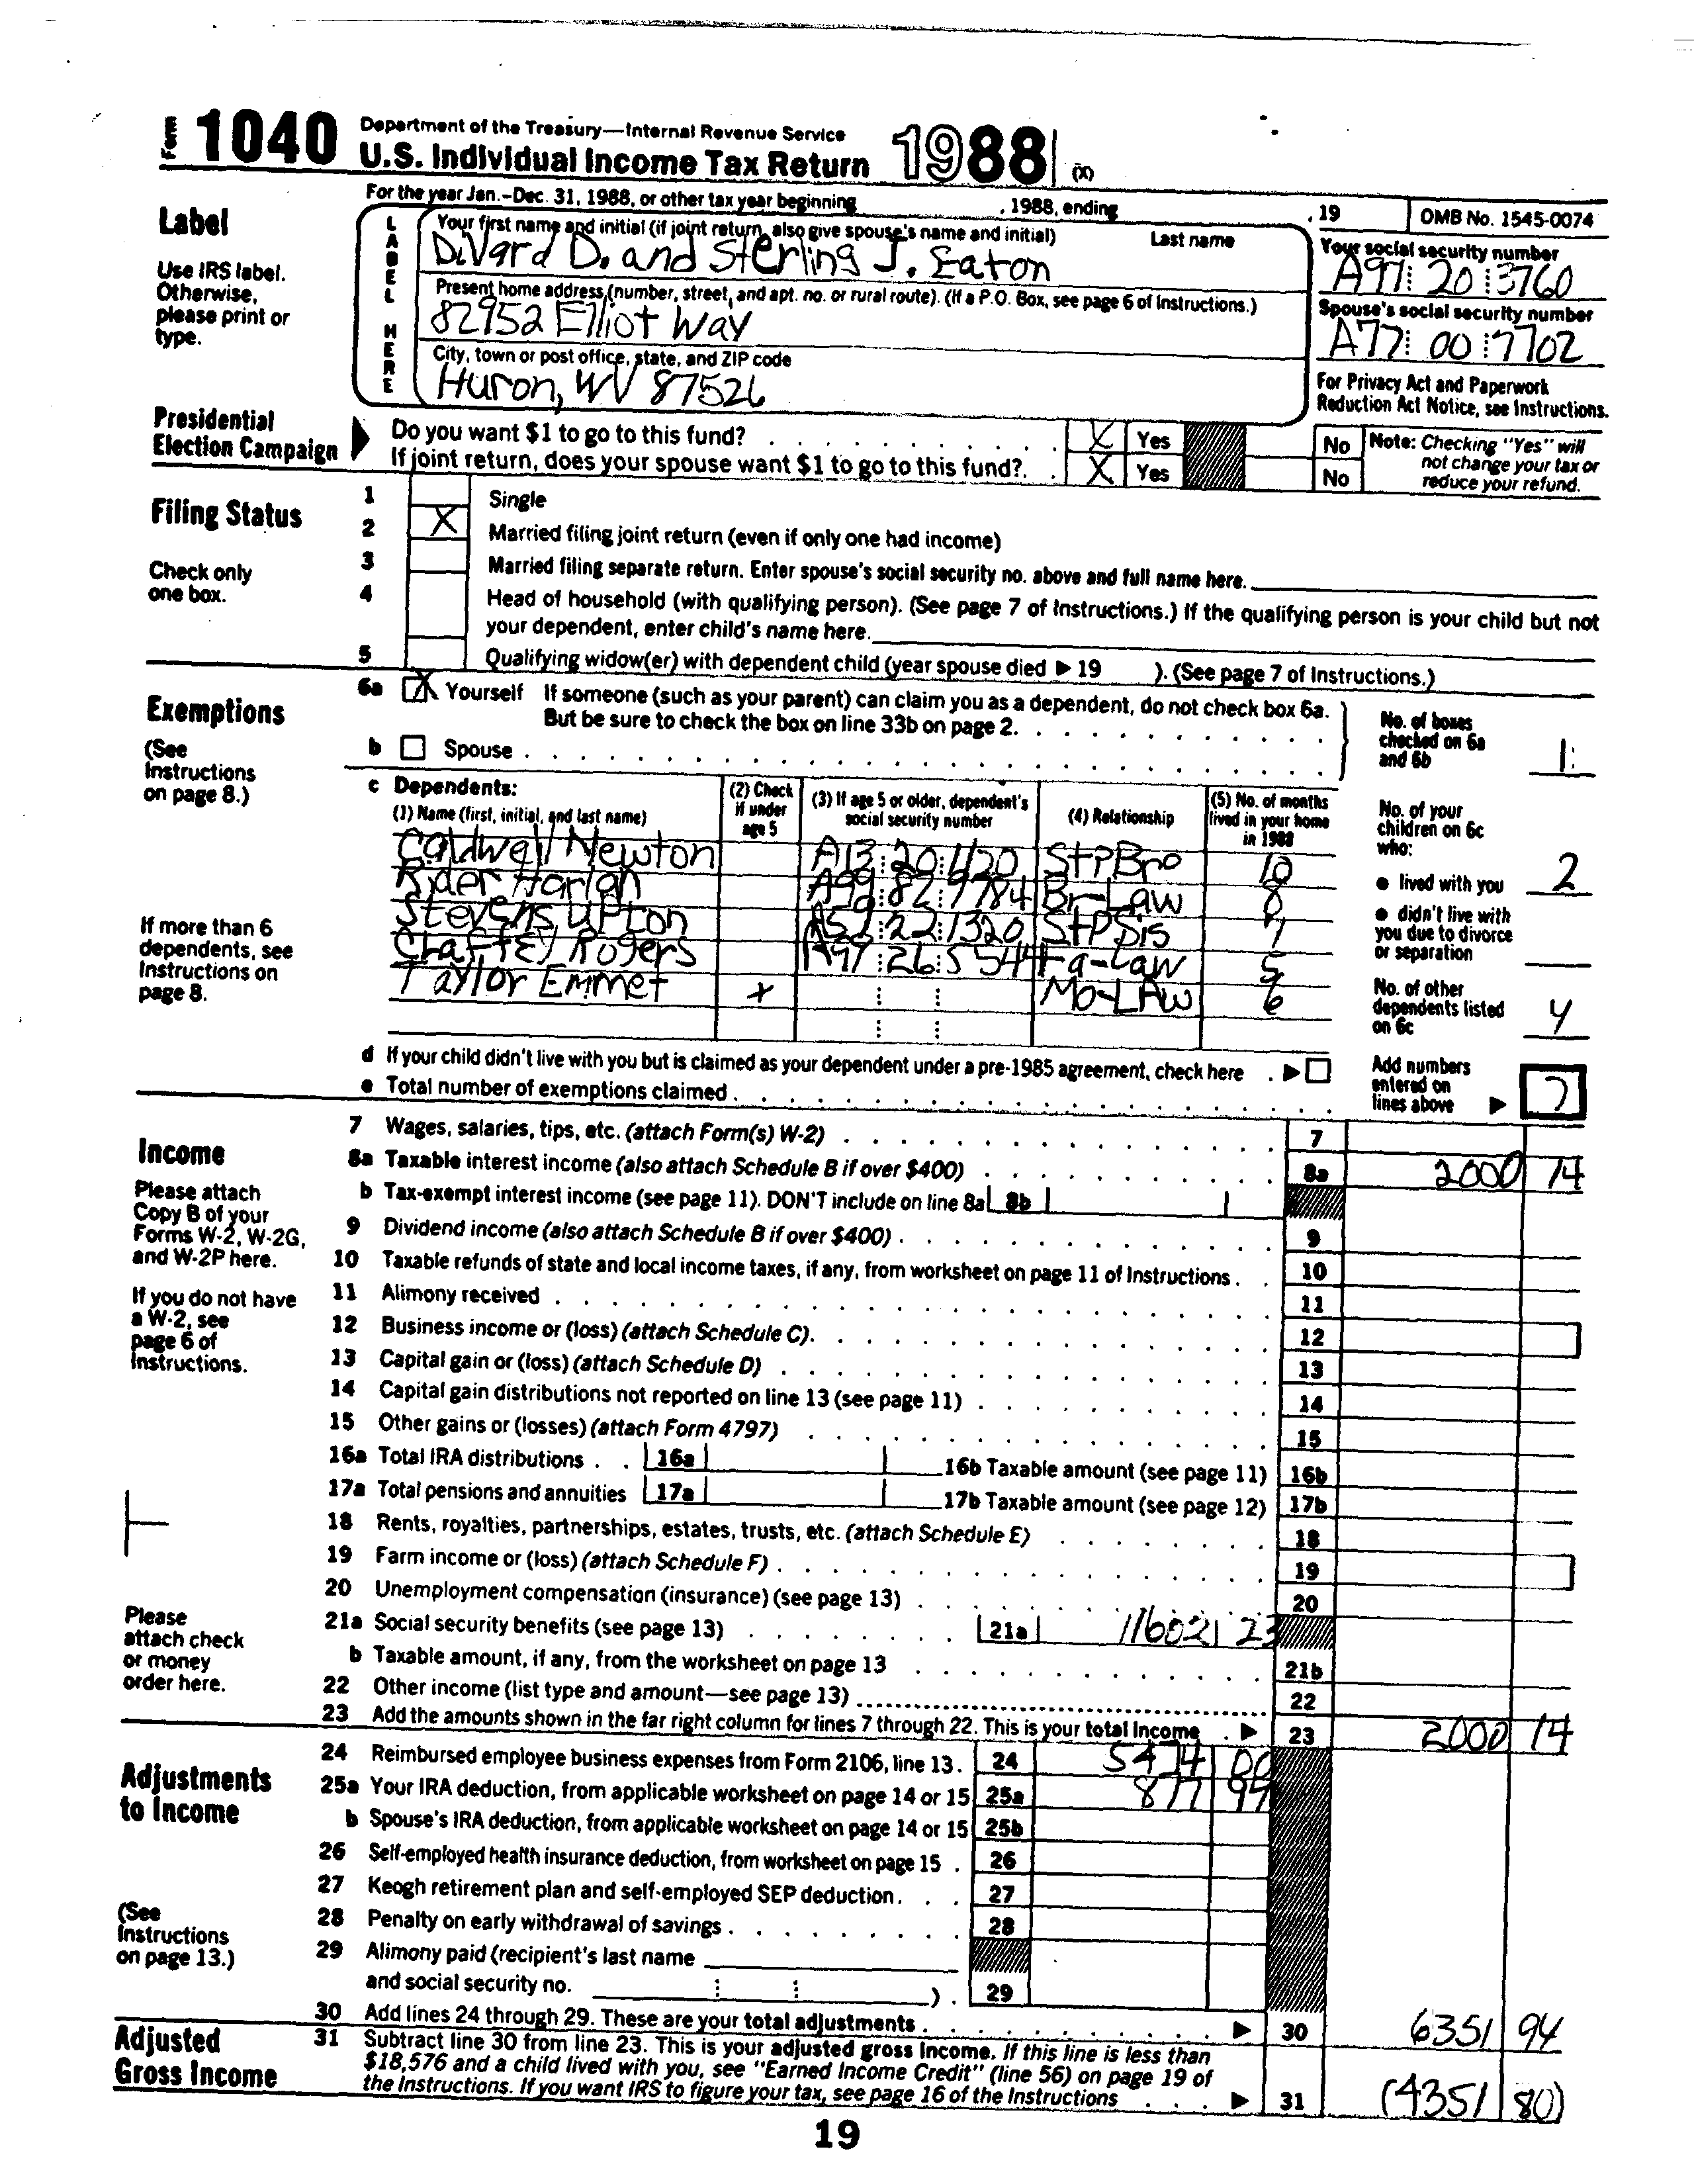 Form 1040 Department of the Treasury—Internal Revenue Service
U.S. Individual Income Tax Return 1988 (X)
For the year Jan.–Dec. 31, 1988, or other tax year beginning , 1988, ending , 19 OMB No. 1545-0074
Label
Use IRS label. Otherwise, please print or type.
LABEL HERE
Your first name and initial (if joint return, also give spouse's name and initial) Last name
DiVard D. and Sterling J. Eaton
Your social security number
A97 20 3760
Present home address (number, street, and apt. no. or rural route). (If a P.O. Box, see page 6 of Instructions.)
82952 Elliot Way
Spouse's social security number
A77 00 7702
City, town or post office, state, and ZIP code
Huron, WV 87526
For Privacy Act and Paperwork Reduction Act Notice, see Instructions.
Presidential Election Campaign
Do you want $1 to go to this fund? X Yes No
If joint return, does your spouse want $1 to go to this fund?. X Yes No
Note: Checking "Yes" will not change your tax or reduce your refund.
Filing Status
Check only one box.
1 Single
2 X Married filing joint return (even if only one had income)
3 Married filing separate return. Enter spouse's social security no. above and full name here.
4 Head of household (with qualifying person). (See page 7 of Instructions.) If the qualifying person is your child but not
your dependent, enter child's name here.
5 Qualifying widow(er) with dependent child (year spouse died ▶ 19 ). (See page 7 of Instructions.)
Exemptions
(See Instructions on page 8.)
6a X Yourself If someone (such as your parent) can claim you as a dependent, do not check box 6a.
But be sure to check the box on line 33b on page 2.
b Spouse
No. of boxes checked on 6a and 6b 1
c Dependents:
(1) Name (first, initial, and last name) (2) Check if under age 5 (3) If age 5 or older, dependent's social security number (4) Relationship (5) No. of months lived in your home in 1988
Caldwell Newton A13 20 1420 StPBro 10
Rider Harlan A99 82 9784 Br-Law 8
Stevens Upton A59 22 1320 StPSis 7
Chaffey Rogers A97 26 5544 Fa-Law 5
Taylor Emmet + Mo-LAw 6
If more than 6 dependents, see Instructions on page 8.
No. of your children on 6c who:
● lived with you 2
● didn't live with you due to divorce or separation
No. of other dependents listed on 6c 4
d If your child didn't live with you but is claimed as your dependent under a pre-1985 agreement, check here ▶
e Total number of exemptions claimed
Add numbers entered on lines above ▶ 7
Income
Please attach Copy B of your Forms W-2, W-2G, and W-2P here.
If you do not have a W-2, see page 6 of Instructions.
Please attach check or money order here.
7 Wages, salaries, tips, etc. (attach Form(s) W-2) 7
8a Taxable interest income (also attach Schedule B if over $400) 8a 2000 14
b Tax-exempt interest income (see page 11). DON'T include on line 8a 8b
9 Dividend income (also attach Schedule B if over $400) 9
10 Taxable refunds of state and local income taxes, if any, from worksheet on page 11 of Instructions 10
11 Alimony received 11
12 Business income or (loss) (attach Schedule C) 12
13 Capital gain or (loss) (attach Schedule D) 13
14 Capital gain distributions not reported on line 13 (see page 11) 14
15 Other gains or (losses) (attach Form 4797) 15
16a Total IRA distributions 16a 16b Taxable amount (see page 11) 16b
17a Total pensions and annuities 17a 17b Taxable amount (see page 12) 17b
18 Rents, royalties, partnerships, estates, trusts, etc. (attach Schedule E) 18
19 Farm income or (loss) (attach Schedule F) 19
20 Unemployment compensation (insurance) (see page 13) 20
21a Social security benefits (see page 13) 21a 11602 23
b Taxable amount, if any, from the worksheet on page 13 21b
22 Other income (list type and amount—see page 13) 22
23 Add the amounts shown in the far right column for lines 7 through 22. This is your total income ▶ 23 2000 14
Adjustments to Income
(See Instructions on page 13.)
24 Reimbursed employee business expenses from Form 2106, line 13. 24 5474 00
25a Your IRA deduction, from applicable worksheet on page 14 or 15 25a 877 94
b Spouse's IRA deduction, from applicable worksheet on page 14 or 15 25b
26 Self-employed health insurance deduction, from worksheet on page 15 26
27 Keogh retirement plan and self-employed SEP deduction 27
28 Penalty on early withdrawal of savings 28
29 Alimony paid (recipient's last name
and social security no. ) 29
30 Add lines 24 through 29. These are your total adjustments ▶ 30 6351 94
Adjusted Gross Income
31 Subtract line 30 from line 23. This is your adjusted gross income. If this line is less than
$18,576 and a child lived with you, see "Earned Income Credit" (line 56) on page 19 of
the Instructions. If you want IRS to figure your tax, see page 16 of the Instructions ▶ 31 (4351 80)
19